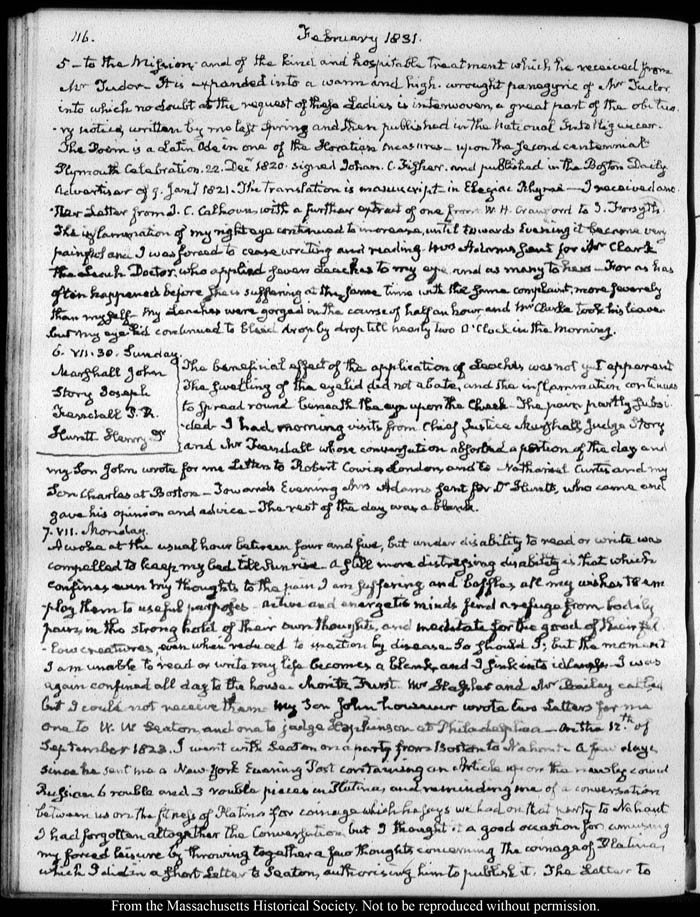 116. February 1831.
5 — to the Mission, and of the kind and hospitable treatment which he received from
Mr Tudor — It is expanded into a warm and high-wrought panegyric of Mr Tudor
into which no doubt at the request of these Ladies is interwoven, a great part of the obitua-
-ry notice, written by me last Spring and then published in the National Intelligencer.
The Poem is a Latin Ode in one of the Horatian measures — upon the second centennial
Plymouth Celebration. 22. Decr 1820. signed Johan. C. Fisher. and published in the Boston Daily
Advertiser of 9. Jany 1821. The translation is manuscript in Elegiac Rhyme — I received ano-
-ther Letter from J. C. Calhoun, with a further extract of one from W. H. Crawford to J. Forsyth.
The inflammation of my right eye continued to increase, until towards Evening it became very
painful and I was forced to cease writing and reading. Mrs Adams sent for Mr Clark
the Leach Doctor, who applied seven leaches to my eye and as many to hers — For as has
often happened before she is suffering at the same time with the same complaint, more severely
than myself — My Leaches were gorged in the course of half an hour, and Mr Clarke took his leave
but my eye-lid continued to bleed drop by drop till nearly two O'Clock in the morning.
6. VII.30. Sunday.
Marshall John
Story Joseph
Trundall T. R.
Huntt Henry Dr
The beneficial effect of the application of Leaches was not yet apparent
The swelling of the eyelid did not abate, and the inflammation continues
to spread round beneath the eye upon the Cheek — The pain partly subsi-
-ded — I had morning visits from Chief Justice Marshall, Judge Story
and Mr whose conversation afforded a portion of the day and
my Son John wrote for me Letters to Robert London, and to Nathaniel Curtis and my
Son Charles at Boston — Towards Evening Mrs Adams sent for Dr Huntt, who came and
gave his opinion and advice — The rest of the day was a blank.
7. VII. Monday.
Awoke at the usual hour between four and five, but under disability to read or write was
compelled to keep my bed till Sunrise. A still more distressing disability is that which
confines even my thoughts to the pain I am suffering, and baffles all my wishes to em-
-ploy them to useful purposes — active and energetic minds find a refuge from bodily
pain, in the strong hold of their own thoughts, and meditate for the good of their fel-
-low creatures, even when reduced to inaction by disease. So should I; but the moment
I am unable to read or write my life becomes a blank, and I sink into idleness. I was
again confined all day to the house. Moritz Furst. Mr Slaghter and Mr Bailey called
but I could not receive them. My Son John however wrote two Letters for me
one to W. W. Seaton, and one to judge Hopkinson at Philadelphia — On the 12th of
September 1823. I went with Seaton on a party from Boston to Nahant — A few days
since he sent me a New-York Evening Post containing an Article upon the newly coined
Russian 6 rouble and 3 rouble pieces in Platina, and reminding me of a conversation
between us on the fitness of Platina for coinage which he says we had on that party to Nahant
I had forgotten altogether the Conversation, but I thought it a good occasion for amusing
my forced leisure by throwing together a few thoughts concerning the coinage of Platina,
which I did in a short Letter to Seaton, authorising him to publish it. The Letter to
From the Massachusetts Historical Society. Not to be reproduced without permission.